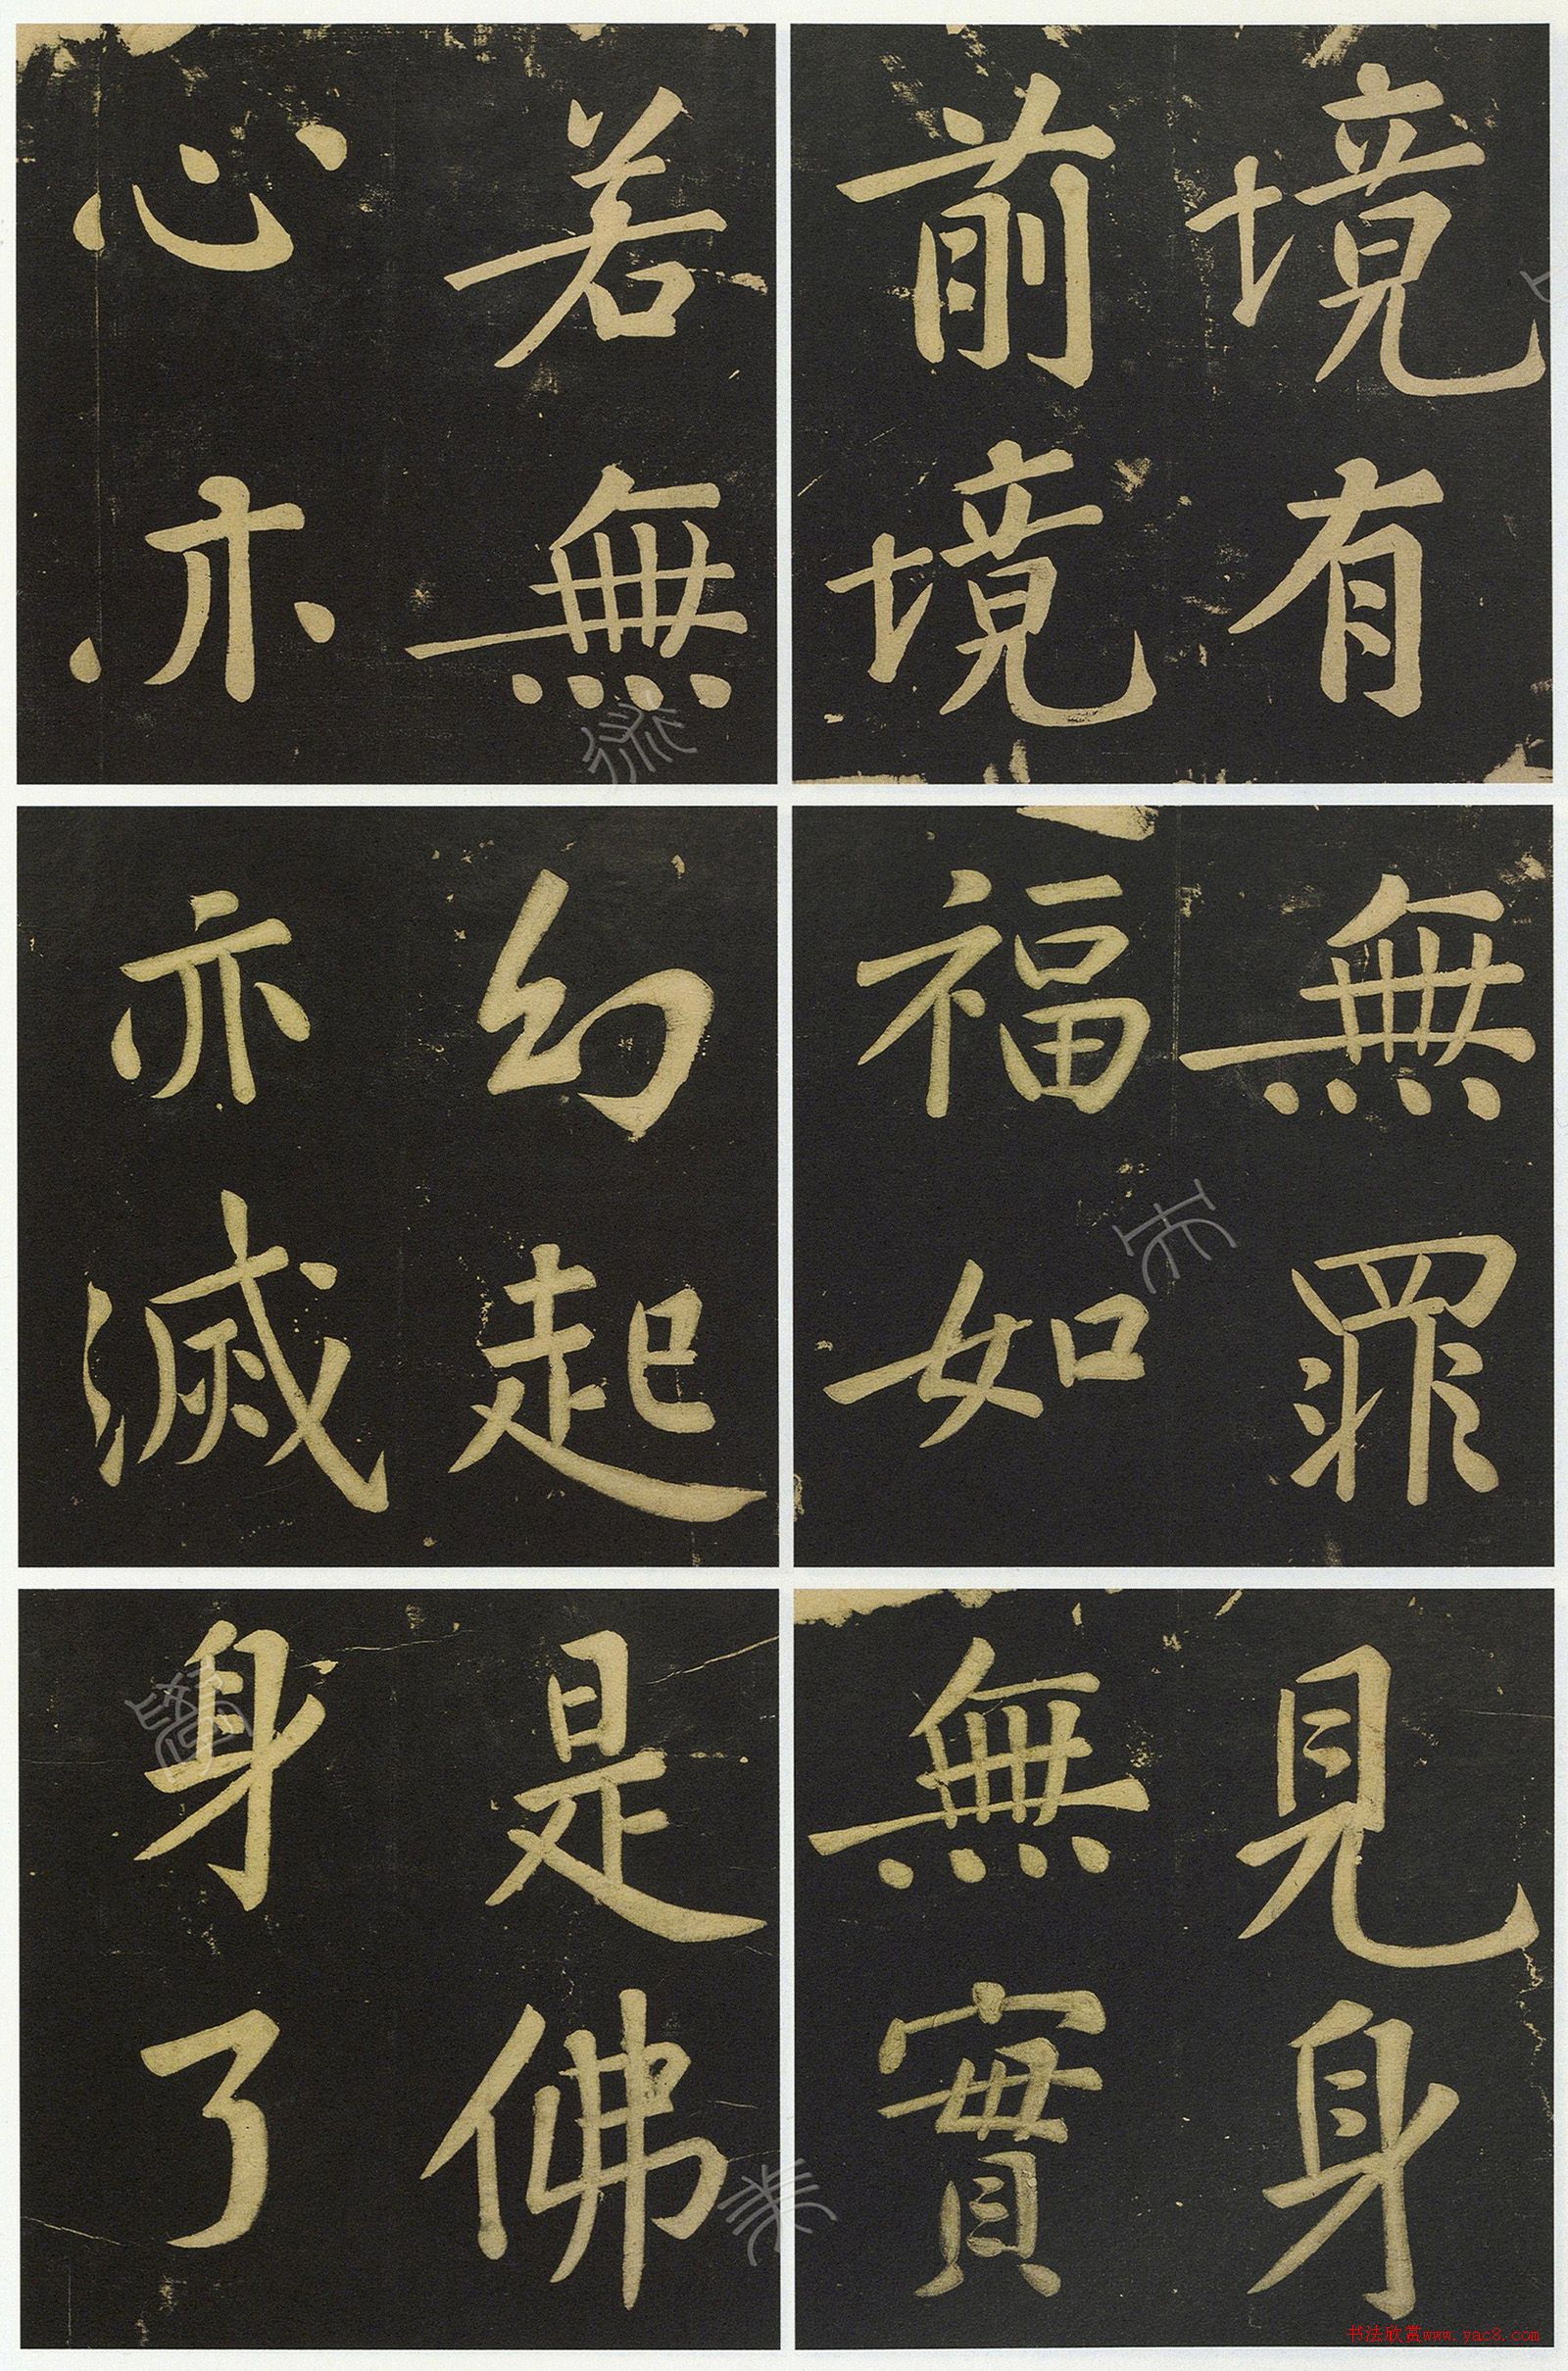 境有
前境
若無
心亦
無罪
福如
幻起
亦滅
見身
無實
是佛
身了
书法欣赏www.yac8.com